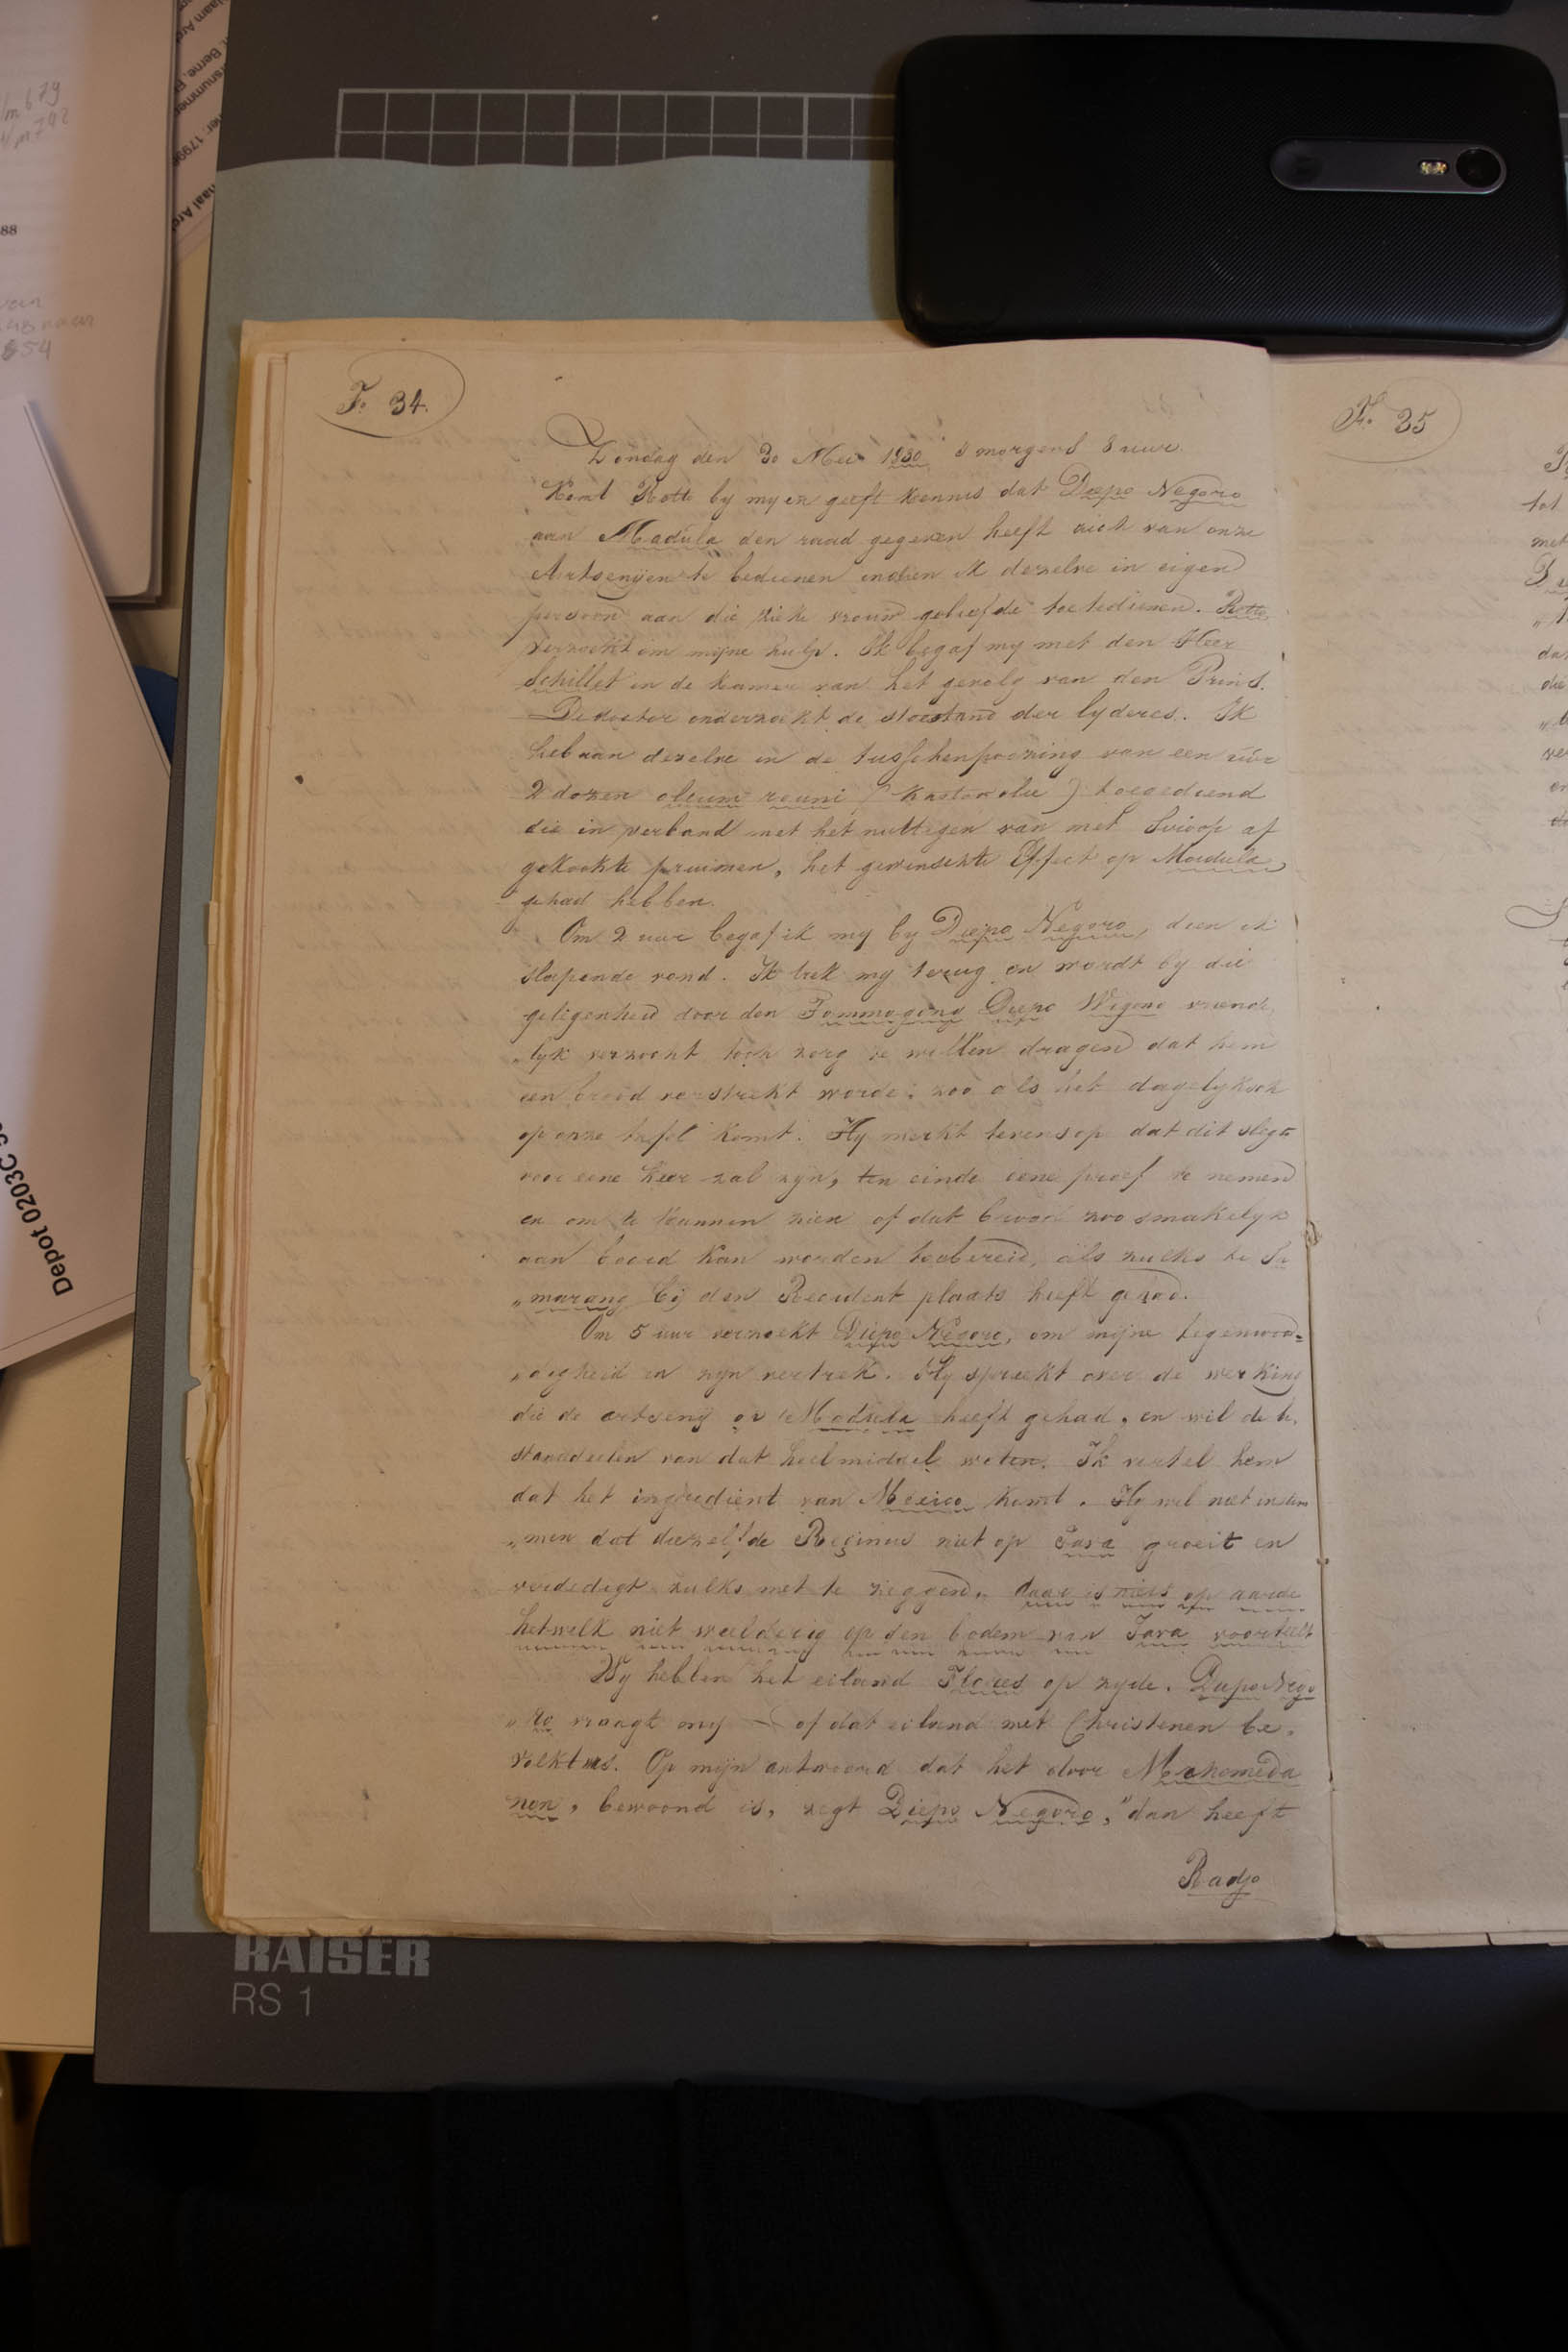 F. 34.
Zondag den 30 Mei 1830 's morgens 8 uur.
Komt Rotto by my en geeft kennis dat Diepo Negoro
aan Madula den raad gegeven heeft zich van onze
Artsenijen te bedienen indien ik dezelve in eigen
persoon aan die zieke vrouw geliefde toe te dienen. Rotto
verzoekt om mijne hulp. Ik begaf my met den Heer
Schillet in de kamer van het gevolg van den Prins.
De doctor onderzoekt de toestand der lyderes. Ik
heb aan dezelve in de tusschenpoozing van een uur
2 dozen oleum recuni (kastorolie) toegediend
die in verband met het nuttigen van met Siroop af
gekookte pruimen, het gewenschte Effect op Madula
gehad hebben.
Om 2 uur begaf ik my by Diepo Negoro, dien ik
slapende vond. Ik trek my terug en wordt by die
geligenheid door den Tommogong Diepo Wigeno vriende
„lyk verzocht toch zorg te willen dragen dat hem
een brood verstrekt worde; zoo als het dagelyksch
op onze tafel komt. Hy merkt tevens op dat dit slegts
voor eene keer zal zyn, ten einde eene proef te nemen
en om te kunnen zien of dat brood zoo smakelyk
aan boord kan worden toebereid, als zulks te Sa
„marang bij den Resident plaats heeft gehad.
Om 5 uur verzoekt Diepo Negoro, om mijne tegenwoor=
„digheid in zyn vertrek. Hy spreekt over de werking
die de artsenij op Madula heeft gehad, en wil de be.
standdeelen van dat heelmiddel weten. Ik vertel hem
dat het ingredient van Mexico komt. Hy wil niet instem
„men dat diezelfde Reçinus niet op Java groeit en
verdedigt zulks met te zeggen, daar is niets op aarde
hetwelk niet weelderig op den bodem van Java voortteelt
Wy hebben het eiland Flores op zyde. Diepo Nego
„ro vraagt my of dat eiland met Christenen be.
volkt is. Op mijn antwoord dat het door Mochomeda
nen, bewoond is, zegt Diepo Negoro, "dan heeft
Radjo
F. 35
tot
met
KAISER
RS 1
Depot 0203C
88